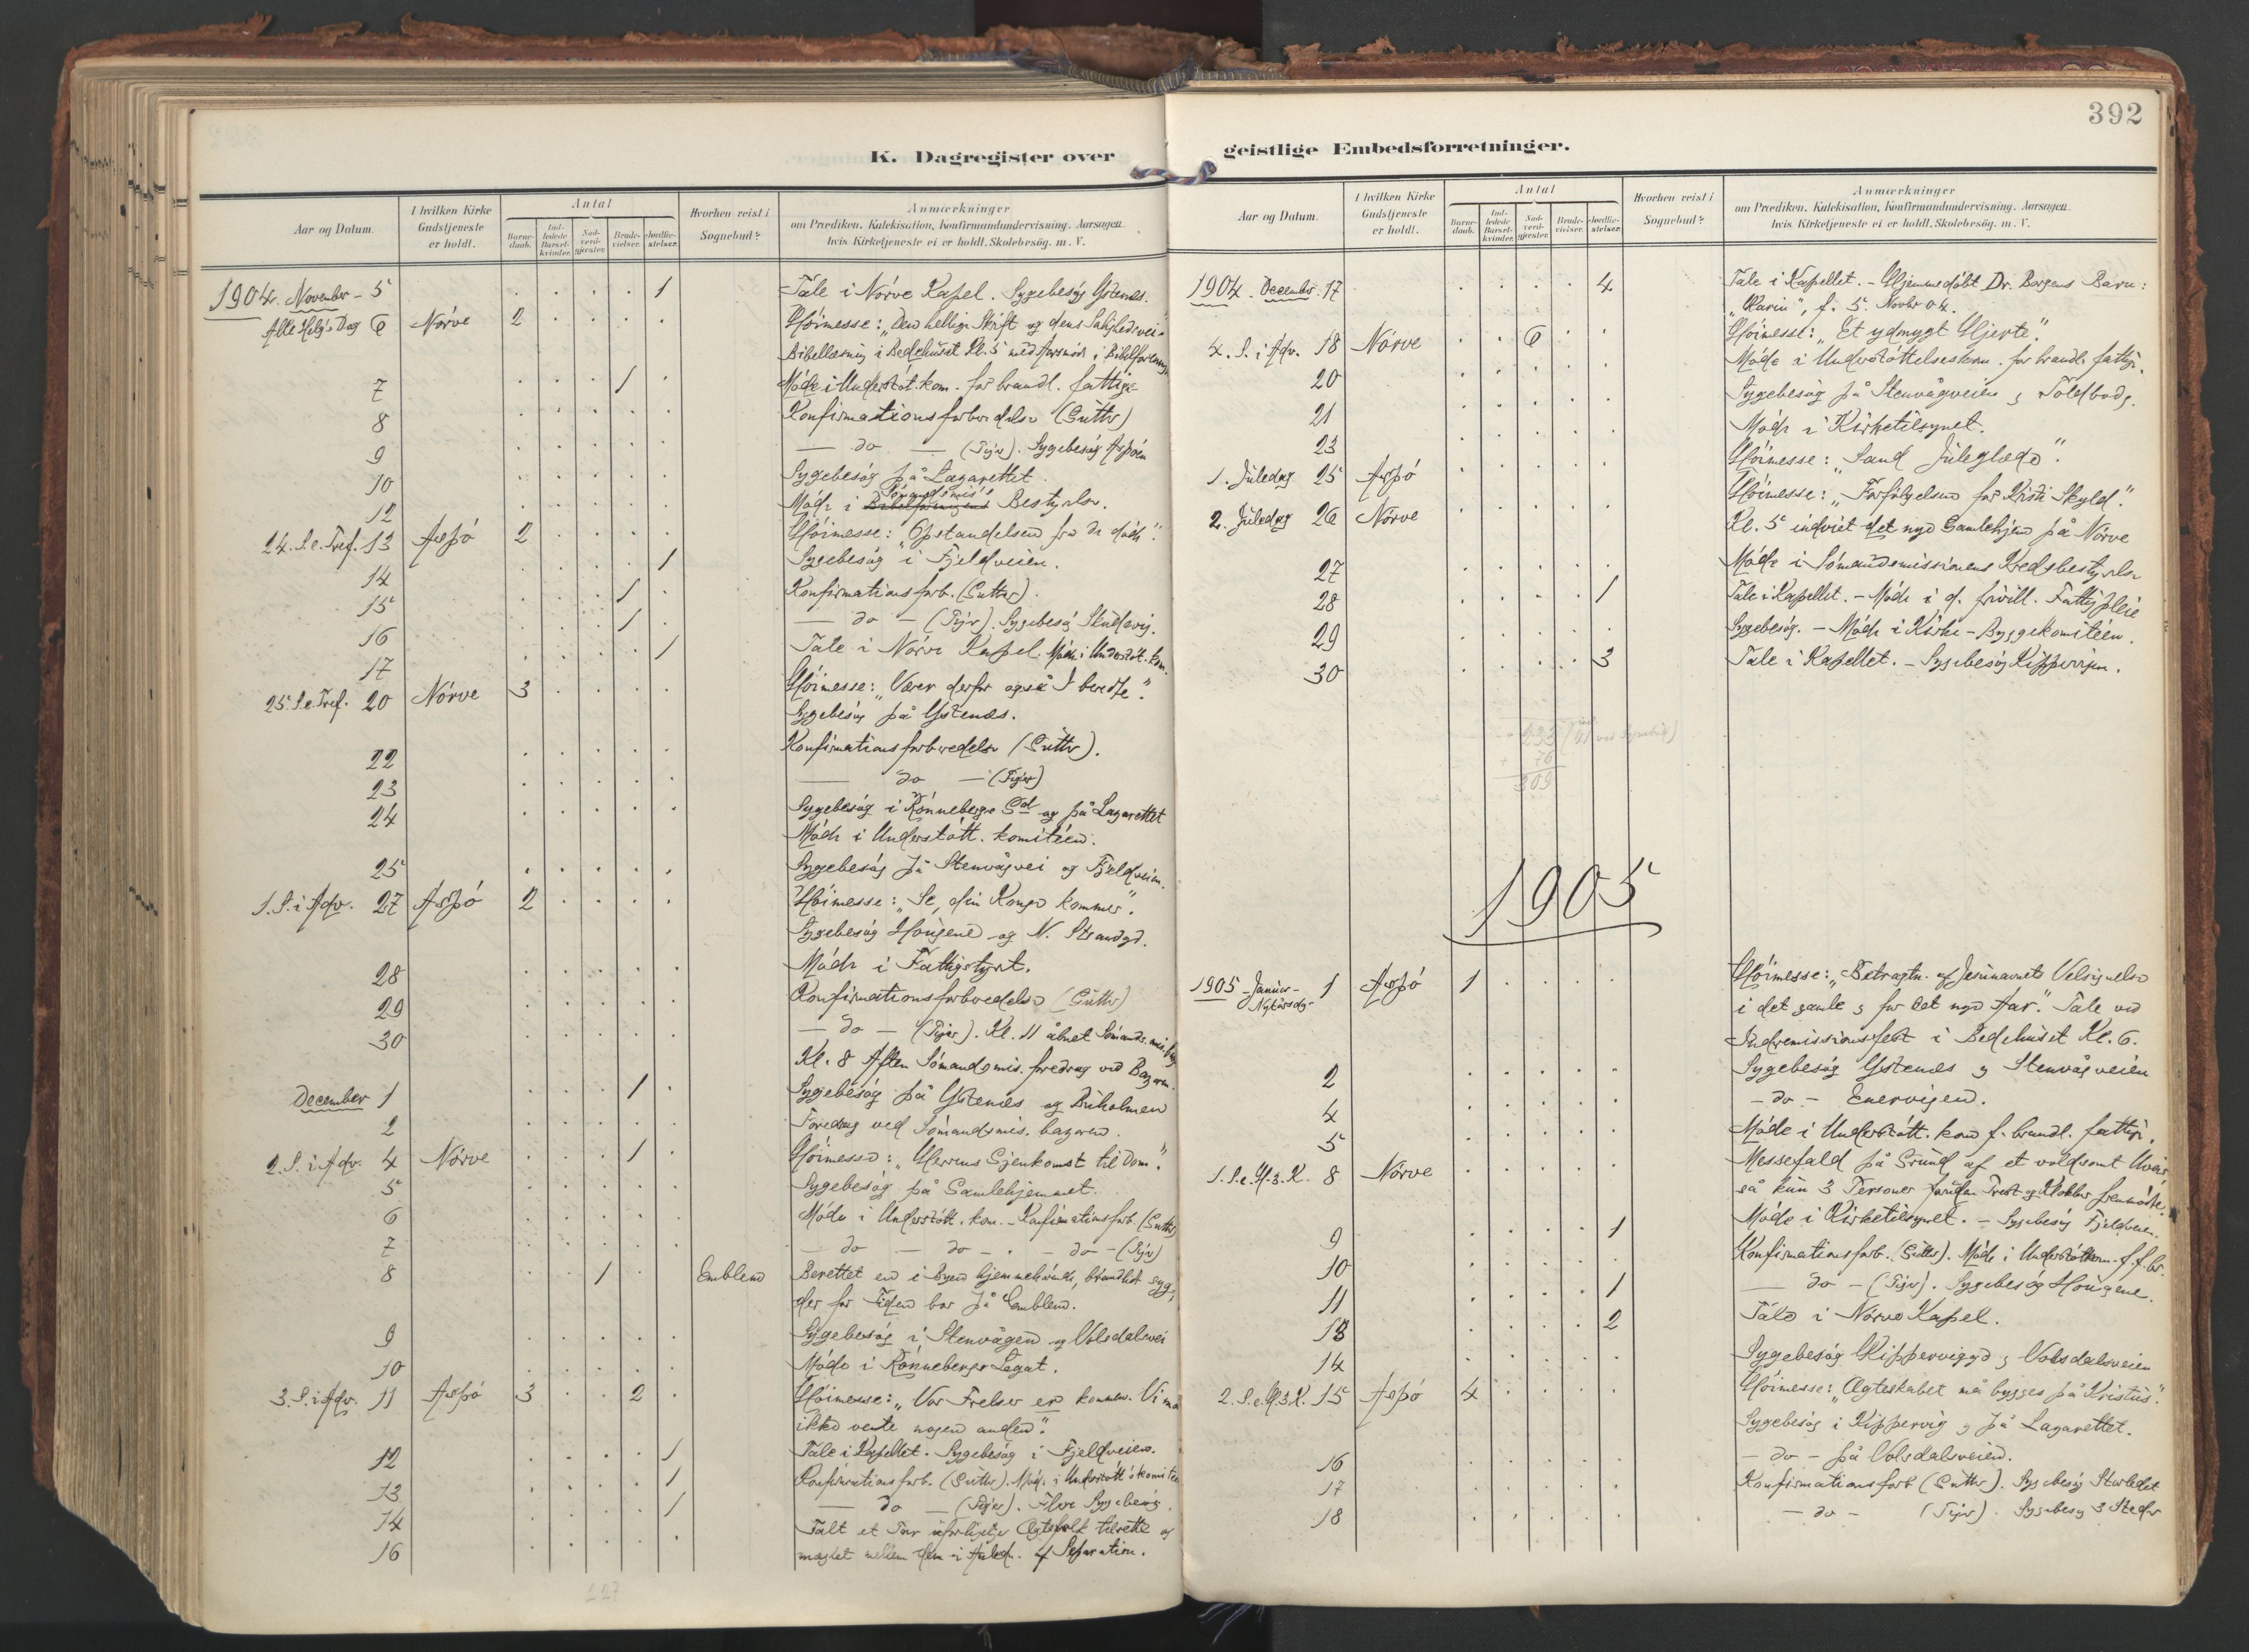 392
K. Dagregister over geistlige Embedsforretninger.
Aar og Datum. I hvilken Kirke Gudstjeneste er holdt. Antal Barnedaab. Indledede Barselkvinder. Nadverdgjester. Brudevielser. Jordfæstelser. Hvorhen reist i Sognebud? Anmærkninger om Prædiken, Katekisation, Konfirmandundervisning, Aarsagen, hvis Kirketjeneste ei er holdt, Skolebesøg. m. V.
1904. November - 5 . . . . 1 Tale i Nörve Kapel. Sygebesög Ystenes.
Alle Helg's Dag 6 Nörve 2 . . . . Höimesse: "Den hellige Skrift og dens Salighedsvei"
Bibellæsning i Bedehuset Kl. 5 med Aarsmöde i
7 . . . 1 . Möde i Understöt. kom. for brandl. fattige
8 . . . . . Konfirmationsforberedelse (Gutter)
9 . . . . . — do — (Piger). Sygebesög Aspöen
10 . . . . . Sygebesög på Lazarettet.
12 . . . . . Möde i Sömandsmis's Bestyrelse.
24. S. e. Tref. 13 Aspö 2 . . . . Höimesse: "Opstandelsen fra de döde".
14 . . . . 1 Sygebesög i Fjeldveien.
15 . . . 1 . Konfirmationsforb. (Gutter).
16 . . . 1 . — do — (Piger). Sygebesög Skudevig.
17 . . . . 1 Tale i Nörve Kapel. Möde i Understöt. kom.
25. S. e. Tref. 20 Nörve 3 . . . . Höimesse: "Værer derfor også I beredte".
Sygebesög på Ystenes.
22 . . . . . Konfirmationsforberedelse (Gutter).
23 . . . . . — do — (Piger)
24 . . . . . Sygebesög i Rönnebergs Gd og på Lazarettet
Möde i Understött. komitéen.
25 . . . . . Sygebesög på Stenvågvei og Fjeldveien.
1. S. i Adv. 27 Aspö 2 . . . . Höimesse: "Se, din Konge kommer".
Sygebesög Hougene og N. Strandgd.
28 . . . . . Möde i Fattigstyret.
29 . . . . . Konfirmationsforberedelse (Gutter)
30 . . . . . — do — (Piger). Kl. 11 åbnet Sömands. mis.
Kl. 8 Aften Sömandsmis. foredrag ved Bazaren.
December 1 . . . 1 . Sygebesög på Ystenes og Buholmen
2 . . . . . Foredrag ved Sömandsmis. bazaren.
2. S. i Adv. 4 Nörve . . . 1 . Höimesse: "Herrens Gjenkomst til Dom".
5 . . . . . Sygebesög på Gamlehjemmet.
6 . . . . . Möde i Understött. kom. - Konfirmationsforb. (Gutter)
7 . . . . . — do — do - . - do - (Piger)
8 . . 1 . Emblem Berettet en i Byen hjemmehörende, brandlidt syg,
der for Tiden bor på Emblem.
9 . . . . . Sygebesög i Stenvågen og Volsdalsvei
10 . . . . . Möde i Rönnebergs Legat.
3. S. i Adv. 11 Aspö 3 . . 2 . Höimesse: "Vor Frelser er kommen. Vi må
ikke vente nogen anden".
12 . . . . 1 Tale i Kapellet. Sygebesög i Fjeldveien.
13 . . . . 1 Konfirmationsforb. (Gutter). Möde i Understött's komitéen
14 . . . . 1 — do — (Piger). Flere Sygebesög.
16 . . . . . Talt et Par uforligte Ægtefolk tilrette og
mæglet mellem dem i Anled. af Separation.
117
Aar og Datum. I hvilken Kirke Gudstjeneste er holdt. Antal Barnedaab. Indledede Barselkvinder. Nadverdgjester. Brudevielser. Jordfæstelser. Hvorhen reist i Sognebud? Anmærkninger om Prædiken, Katekisation, Konfirmandundervisning, Aarsagen, hvis Kirketjeneste ei er holdt, Skolebesøg. m. V.
1904. December. 17 . . . . 4 Tale i Kapellet. - Hjemmedöbt Dr. Borgens Barn:
"Karin", f. 5. Novbr 04.
4. S. i Adv. 18 Nörve . . 6 . . Höimesse: "Et ydmygt Hjerte".
20 . . . . . Möde i Understöttelseskom. for brandl. fattige.
21 . . . . . Sygebesög på Stenvågveien og Toldbodg.
23 . . . . . Möde i Kirketilsynet.
1. Juledag 25 Aspö . . . . . Höimesse: "Sand Juleglæde".
2. Juledag 26 Nörve . . . . . Höimesse: "Forfölgelsen for Kristi Skyld".
Kl. 5 indviet det nye Gamlehjem på Nörve
27 . . . . . Möde i Sömandsmissionens Kredsbestyrelse
28 . . . . 1 Tale i Kapellet. - Möde i d. frivill. Fattigpleie
29 . . . . . Sygebesög. - Möde i Kirke-Byggekomitéen.
30 . . . . 3 Tale i Kapellet. - Sygebesög Kippervigen.
+ 76
309
1905
1905 - Januar - Nytårsdg - 1 Aspö 1 . . . . Höimesse: "Betragtn. af Jesunavnets Velsignelse
i det gamle og for det nye Aar." Tale ved
Indremissionsfest i Bedehuset Kl. 6.
2 . . . . . Sygebesög Ystenes og Stenvågveien
4 . . . . . - do - Enervigen.
5 . . . . . Möde i Understött. kom f. brandl. fattige.
1. S. e. H. 3. K. 8 Nörve . . . . . Messefald på Grund af et voldsomt Uveir,
så kun 3 Personer foruden Prest og Klokker fremmödte.
9 . . . . 1 Möde i Kirketilsynet. - Sygebesög Fjeldveien.
10 . . . . . Konfirmationsforb. (Gutter). Möde i Understötkom. f. f. br.
11 . . . . 1 — do - (Piger). Sygebesög Hougene.
13 . . . . 2 Tale i Nörve Kapel.
14 . . . . . Sygebesög Kippervigsgd og Volsdalsveien
2. S. e. H. 3. K. 15 Aspö 4 . . . . Höimesse: "Ægteskabet må bygges på Kristus".
Sygebesög i Kippervig og på Lazarettet.
16 . . . . . - do - på Volsdalsveien.
17 . . . . . Konfirmationsforb (Gutter). Sygebesög
18 . . . . . - do - (Piger). Sygebesög 3 Steder